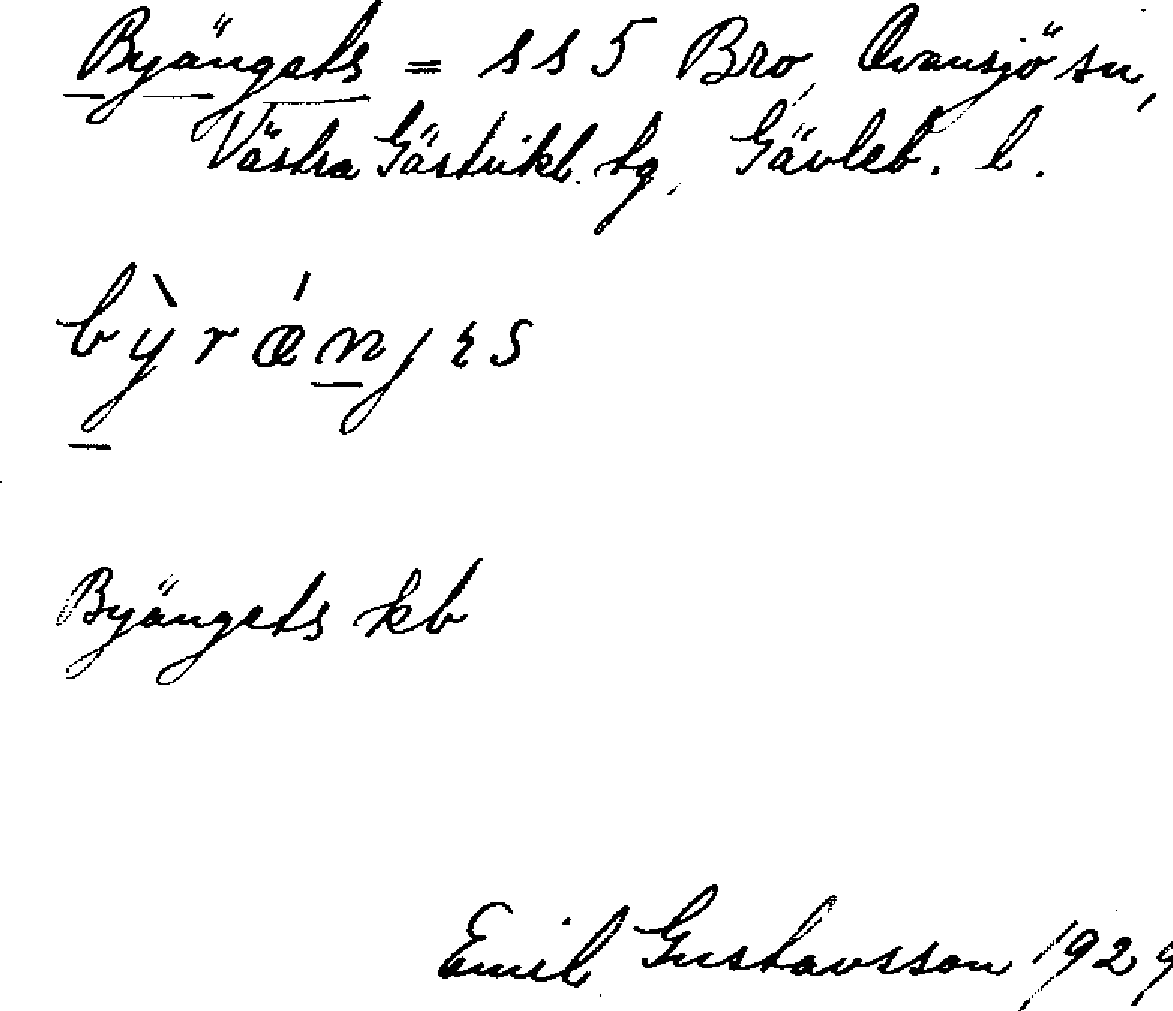 Byängets = s s 5 Bro, Ovansjö sn,
Västra Gästrikl. tg, Gävleb. l.
bỳrǽnjɛs
Byängets kb
Emil Gustavsson 1929